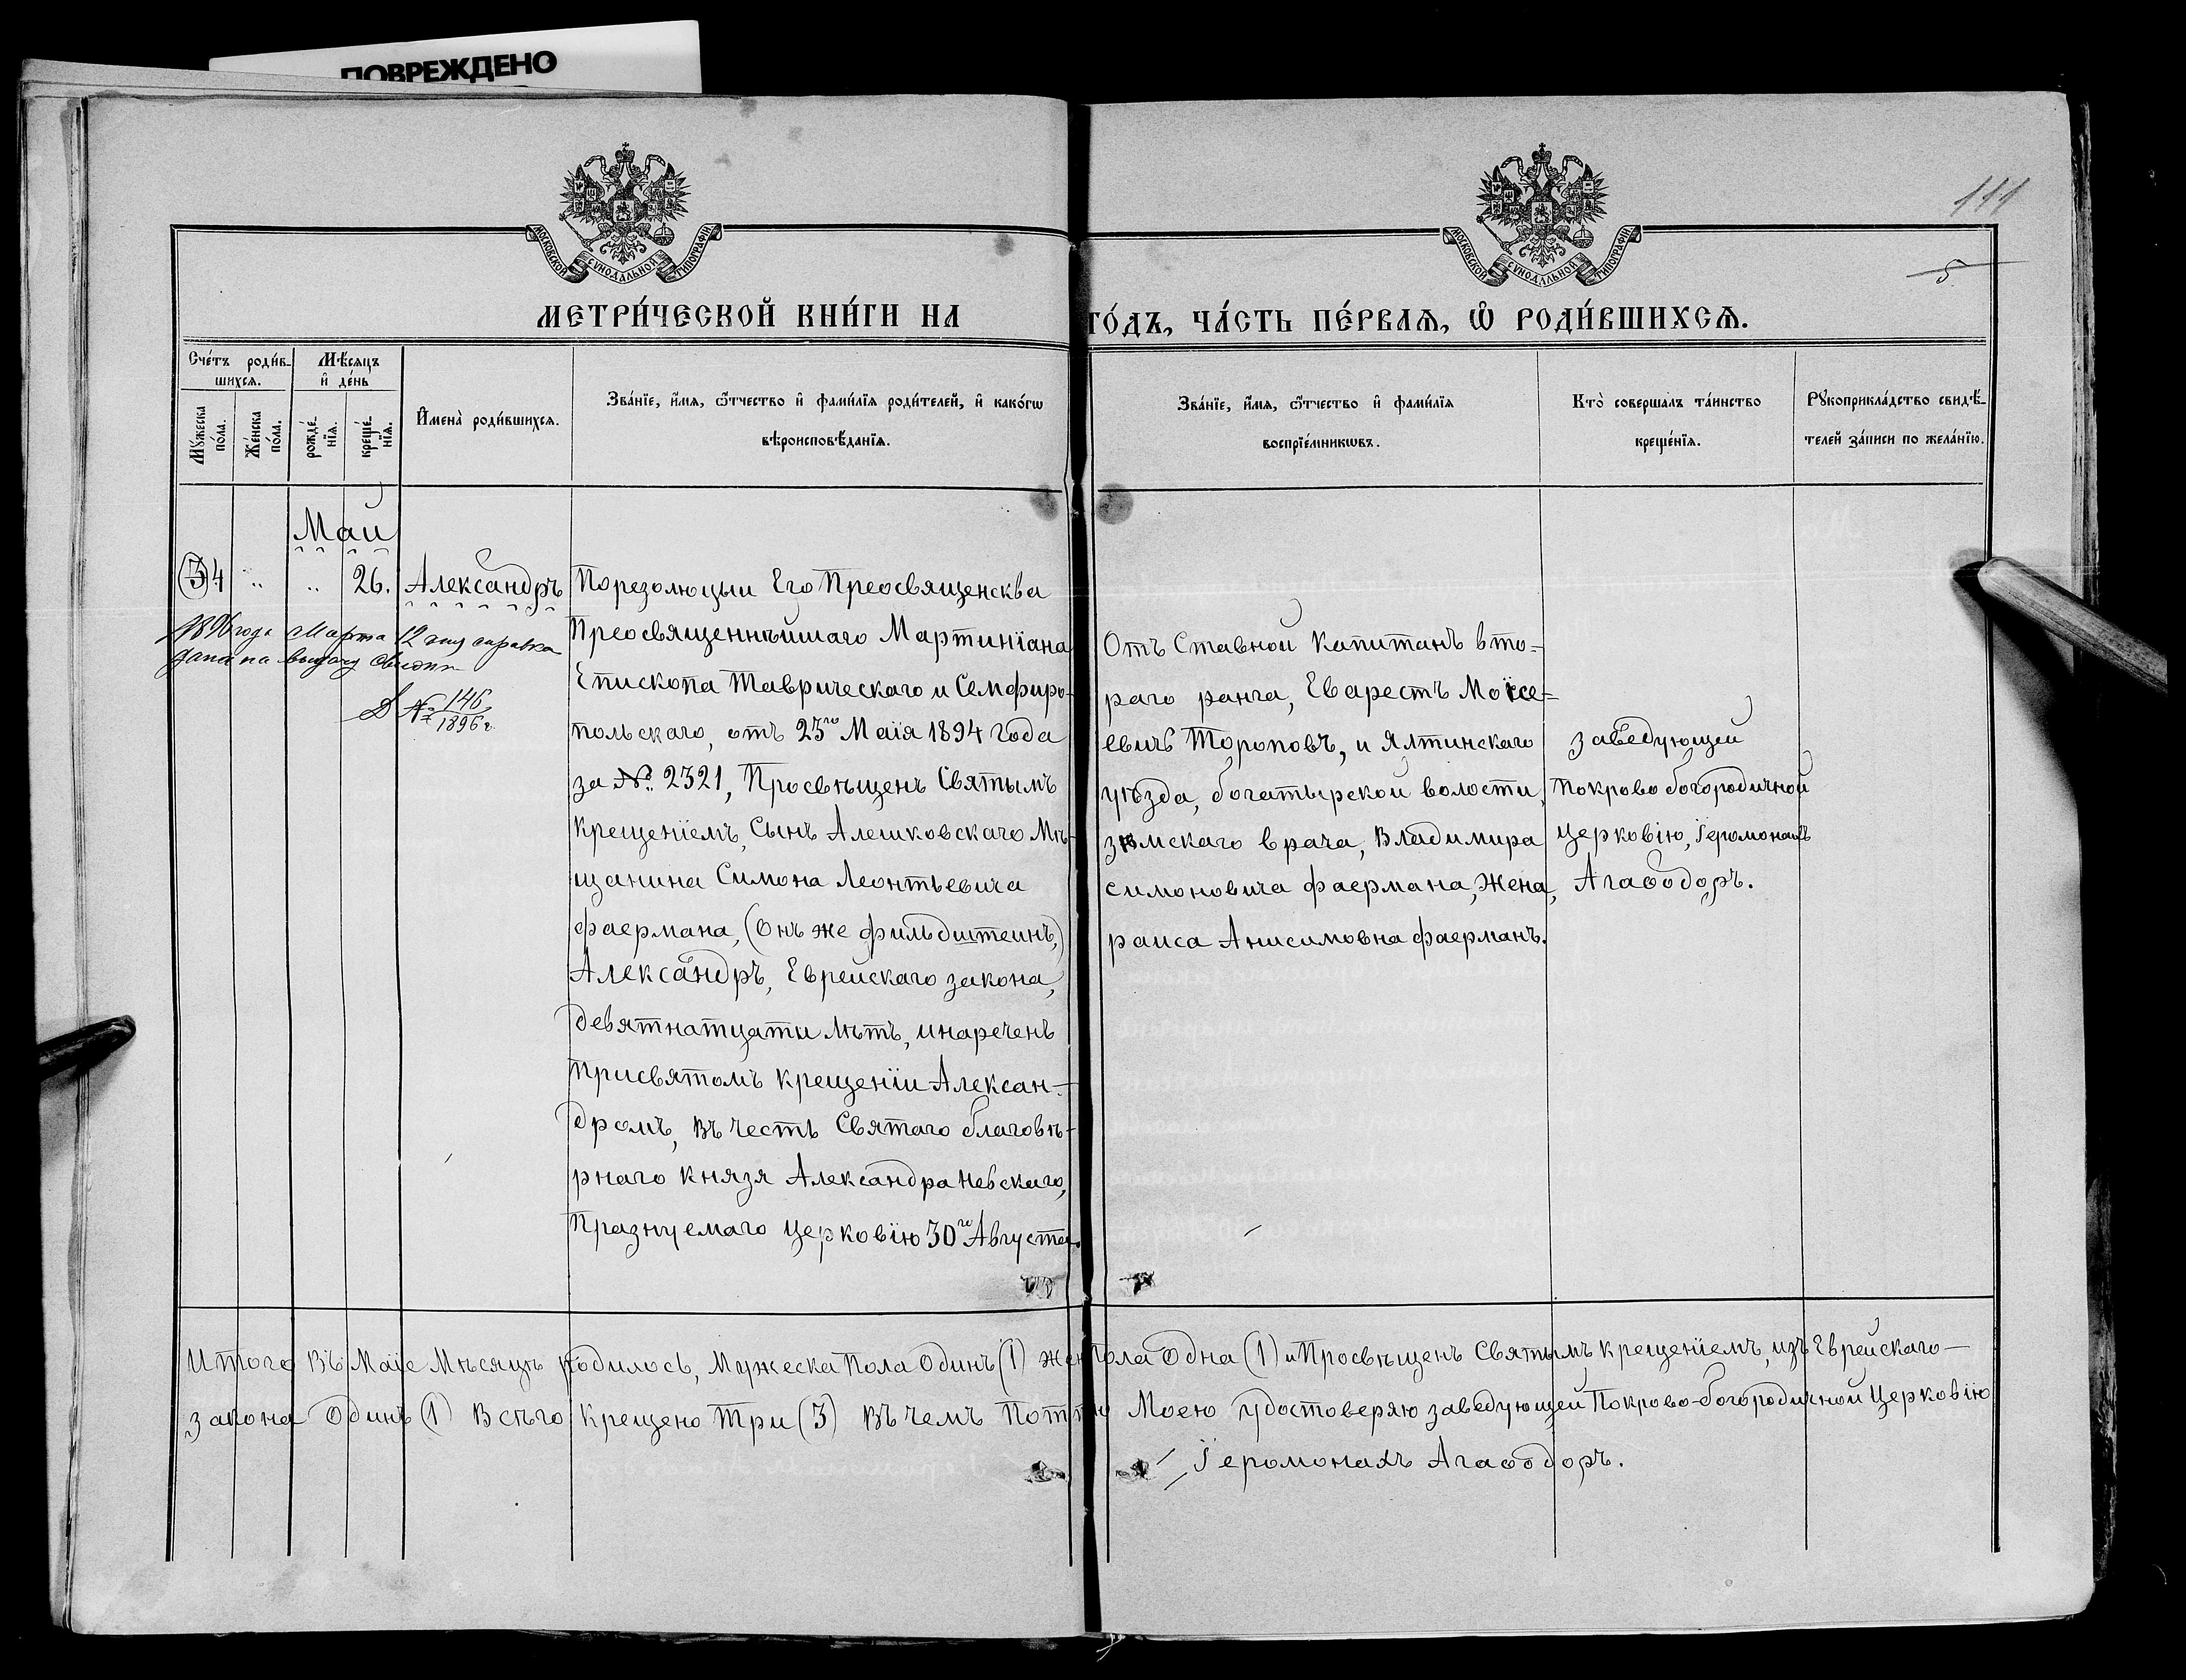 ПОВРЕЖДЕНО
111
5
МОСКОВСКОЙ СѴНОДАЛЬНОЙ ТИПОГРАФІИ
МОСКОВСКОЙ СѴНОДАЛЬНОЙ ТИПОГРАФІИ
МЕТРИ́ЧЕСКОЙ КНИ́ГИ НА ГО́ДЪ, ЧА́СТЬ ПЕ́РВАѦ, Ѽ РОДИ́ВШИХСѦ.
Сче́тъ роди́в-
шихсѧ.
Мꙋ́жеска по́ла.
Же́нска по́ла.
Мѣ́сѧцъ
и҆ де́нь
рожде́-
нїѧ.
креще́-
нїѧ.
И҆мена̀ роди́вшихсѧ.
Зва́нїе, и҆́мѧ, ѻ҆́тчество и҆ фами́лїѧ роди́телей, и҆ како́гѡ
вѣроисповѣ́данїѧ.
Зва́нїе, и҆́мѧ, ѻ҆́тчество и҆ фами́лїѧ
воспрїе́мникѡвъ.
Кто̀ соверша́лъ та́инство
креще́нїѧ.
Рꙋкоприкла́дство свидѣ́-
телей за́писи по жела́нїю.
Май
34 „ „ 26. Александръ
1896 года Марта 12 дня справка
дана на выдачу
№ 146
1896 г.
По резолюцыи Его Преосвященсква
Преосвященнѣйшаго Мартинїана
Епископа Таврическаго и Семфиро-
польскаго, отъ 23го Маїя 1894 Года
за №. 2321, Просвѣщенъ Святымъ
Крещенїемъ, Сынъ Алешковскаго Мѣ-
щанина Симона Леонтьевича
фаермана, (Онъ же фильдштеинъ,)
Александръ, Еврейскаго закона,
Девятнатцати лѣтъ, и наречень
При святомъ крещенїи Алексан-
Дромъ, въ честь Святаго благовѣ-
рнаго Князя Александра Невскаго,
Празнуемаго Церковїю 30го Августа.
Отъ Ставной Капитанъ вто-
раго ранга, Еварестъ Моїсе-
евичъ Тороповъ, и Ялтинскаго
уѣзда, богатырской волости,
земскаго врача, Владимира
симоновича фаермана, Жена,
раиса Анисимовна фаерманъ.
Заведующей
Покрово богородичной
церковїю, Іеромонахъ
Агаѳодоръ.
Итого Въ Маїе Мѣсяцѣ родилось, Мужеска Пола Одинъ (1) Жен Пола Одна (1) и Просвѣщенъ Святымъ Крещенїемъ, изъ Еврейскаго —
закона Одинъ (1) Всѣго Крещено Три (3) Въ чемъ Моею удостоверяю заведующей Покрово-богородичной Церковїю
Іеромонахъ Агаѳодоръ.